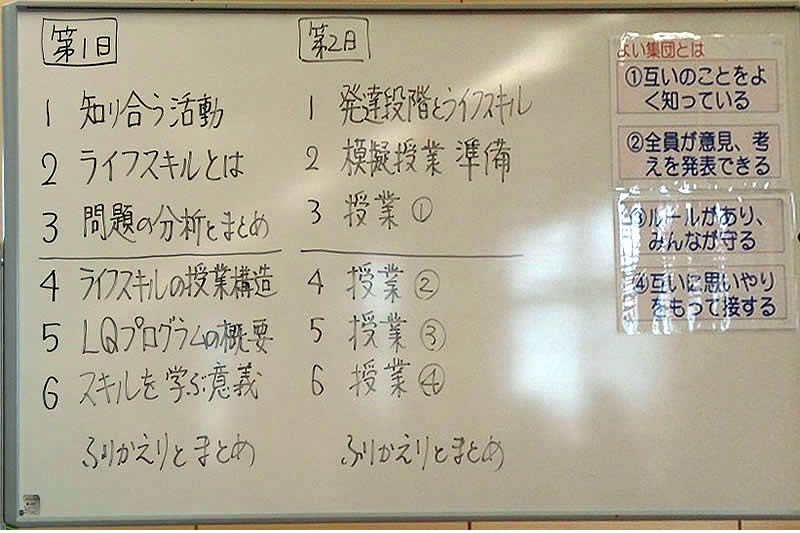 第1日
1 知り合う活動
2 ライフスキルとは
3 問題の分析とまとめ
4 ライフスキルの授業構造
5 LQプログラムの概要
6 スキルを学ぶ意義
ふりかえりとまとめ
第2日
1 発達段階とライフスキル
2 模擬授業 準備
3 授業①
4 授業②
5 授業③
6 授業④
ふりかえりとまとめ
よい集団とは
①互いのことをよ
く知っている
②全員が意見、考
えを発表できる
③ルールがあり、
みんなが守る
④互いに思いやり
をもって接する